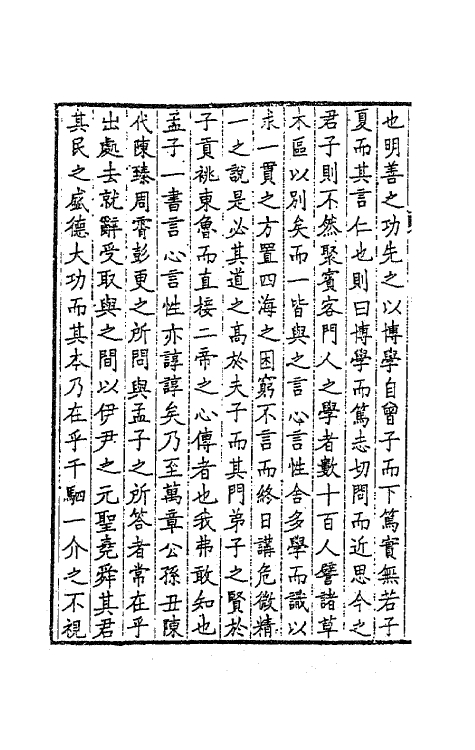 也明善之功先之以博學自曾子而下篤實無若子
夏而其言仁也則曰博學而篤志切問而近思今之
君子則不然聚賓客門人之學者數十百人譬諸草
木區以別矣而一皆與之言心言性舍多學而識以
求一貫之方置四海之困窮不言而終日講危微精
一之說是必其道之高於夫子而其門弟子之賢於
子貢祧東魯而直接二帝之心傳者也我弗敢知也
孟子一書言心言性亦諄諄矣乃至萬章公孫丑陳
代陳臻周霄彭更之所問與孟子之所答者常在乎
出處去就辭受取與之間以伊尹之元聖堯舜其君
其民之盛德大功而其本乃在乎千駟一介之不視